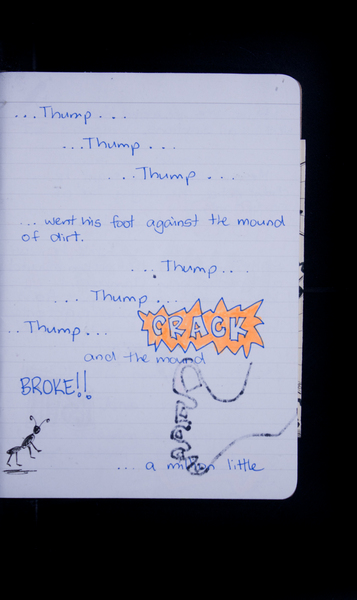 ...Thump...
...Thump...
...Thump...
... went his foot against the mound
of dirt.
...Thump...
...Thump...
...Thump...
CRACK
and the mound
BROKE!!
... a million little